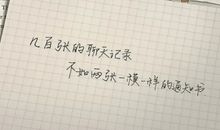 几百张的聊天记录
不如两张一模一样的通知书